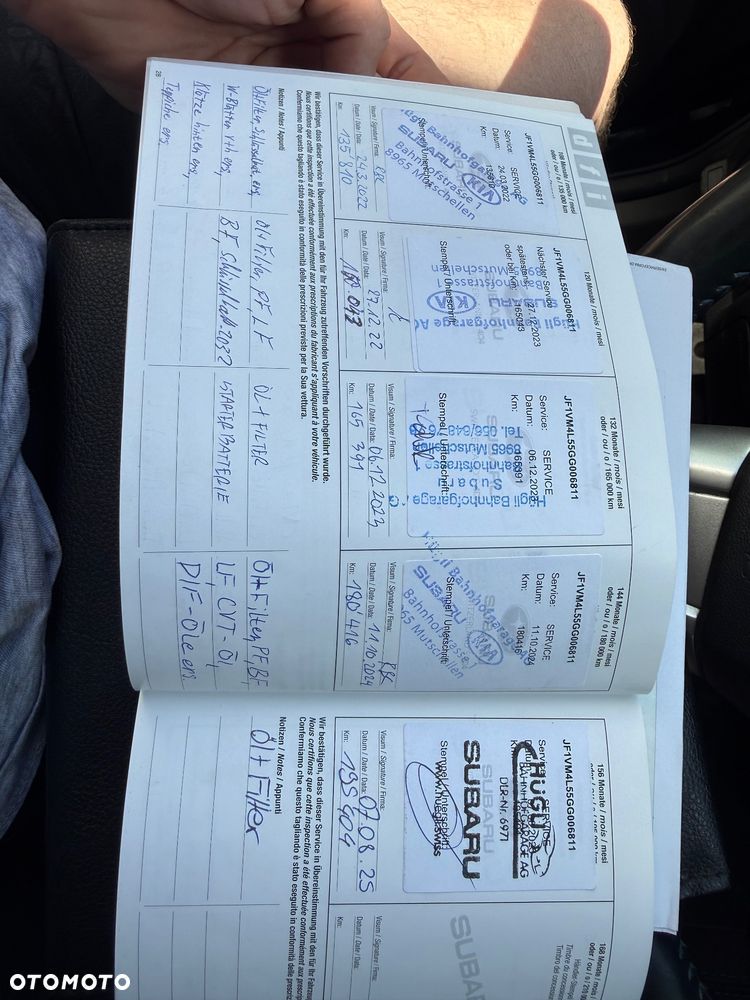 108 Monate / mois / mesi
oder / ou / o / 135 000 km
JF1VM4L55GG006811
Service: SERVICE
Datum: 24.03.2022
Km:
Stempel / Unterschrift
SUBARU
KIA
Bahnhofstrasse 7
8965 Mutschellen
Visum / Signature / Firma:
Datum / Date / Data: 24.3.2022
Km: 135 810
120 Monate / mois / mesi
JF1VM4L55GG006811
Nächster Service
spätestens: 27.12.2023
oder bei km: 165043
KIA
Stempel / Unterschrift
Visum / Signature / Firma:
Datum / Date / Data: 27.12.22
Km: 150 043
132 Monate / mois / mesi
oder / ou / o / 165 000 km
JF1VM4L55GG006811
Service: SERVICE
Datum: 06.12.2023
Km: 165391
Stempel / Unterschrift:
Hügli Bahnhofgarage AG
Subaru
Bahnhofstrasse
8965 Mutschellen
Visum / Signature / Firma:
Datum / Date / Data: 06.12.2023
Km: 165 391
144 Monate / mois / mesi
oder / ou / o / 180 000 km
JF1VM4L55GG006811
Service: SERVICE
Datum: 11.10.2024
Km: 180416
Stempel / Unterschrift
SUBARU
Bahnhofstrasse
8965 Mutschellen
Visum / Signature / Firma:
Datum / Date / Data: 11.10.2024
Km: 180 416
Wir bestätigen, dass dieser Service in Übereinstimmung mit den für Ihr Fahrzeug zutreffenden Vorschriften durchgeführt wurde.
Nous certifions que cette inspection a été effectuée conformément aux prescriptions du fabricant s'appliquant à votre véhicule.
Confermiamo che questo tagliando è stato eseguito in conformità delle prescrizioni previste per la Sua vettura.
Notizen / Notes / Appunti
W-Blätter
Klötze hinten ers.
Teppiche ers.
Öl + Filter, PF, LF
BF,
ÖL + FILTER
STARTERBATTERIE
Öl + Filter, PF, BF
LF, CVT-Öl
DIF-Öle ers.
28
156 Monate / mois / mesi
JF1VM4L55GG006811
HÜGLI
BAHNHOFGARAGE AG
DLR-Nr. 6971
SUBARU
Stempel / Unterschrift
www.huegli.swiss
Visum / Signature / Firma:
Datum / Date / Data: 07.08.25
Km: 195 404
168 Monate / mois / mesi
SUBARU
Visum / Signature / Firma:
Datum / Date / Data:
Km:
Wir bestätigen, dass dieser Service in Übereinstimmung mit den für Ihr Fahrzeug
Nous certifions que cette inspection a été effectuée conformément aux
Confermiamo che questo tagliando è stato eseguito in conformità delle
Notizen / Notes / Appunti
Öl + Filter
OTOMOTO